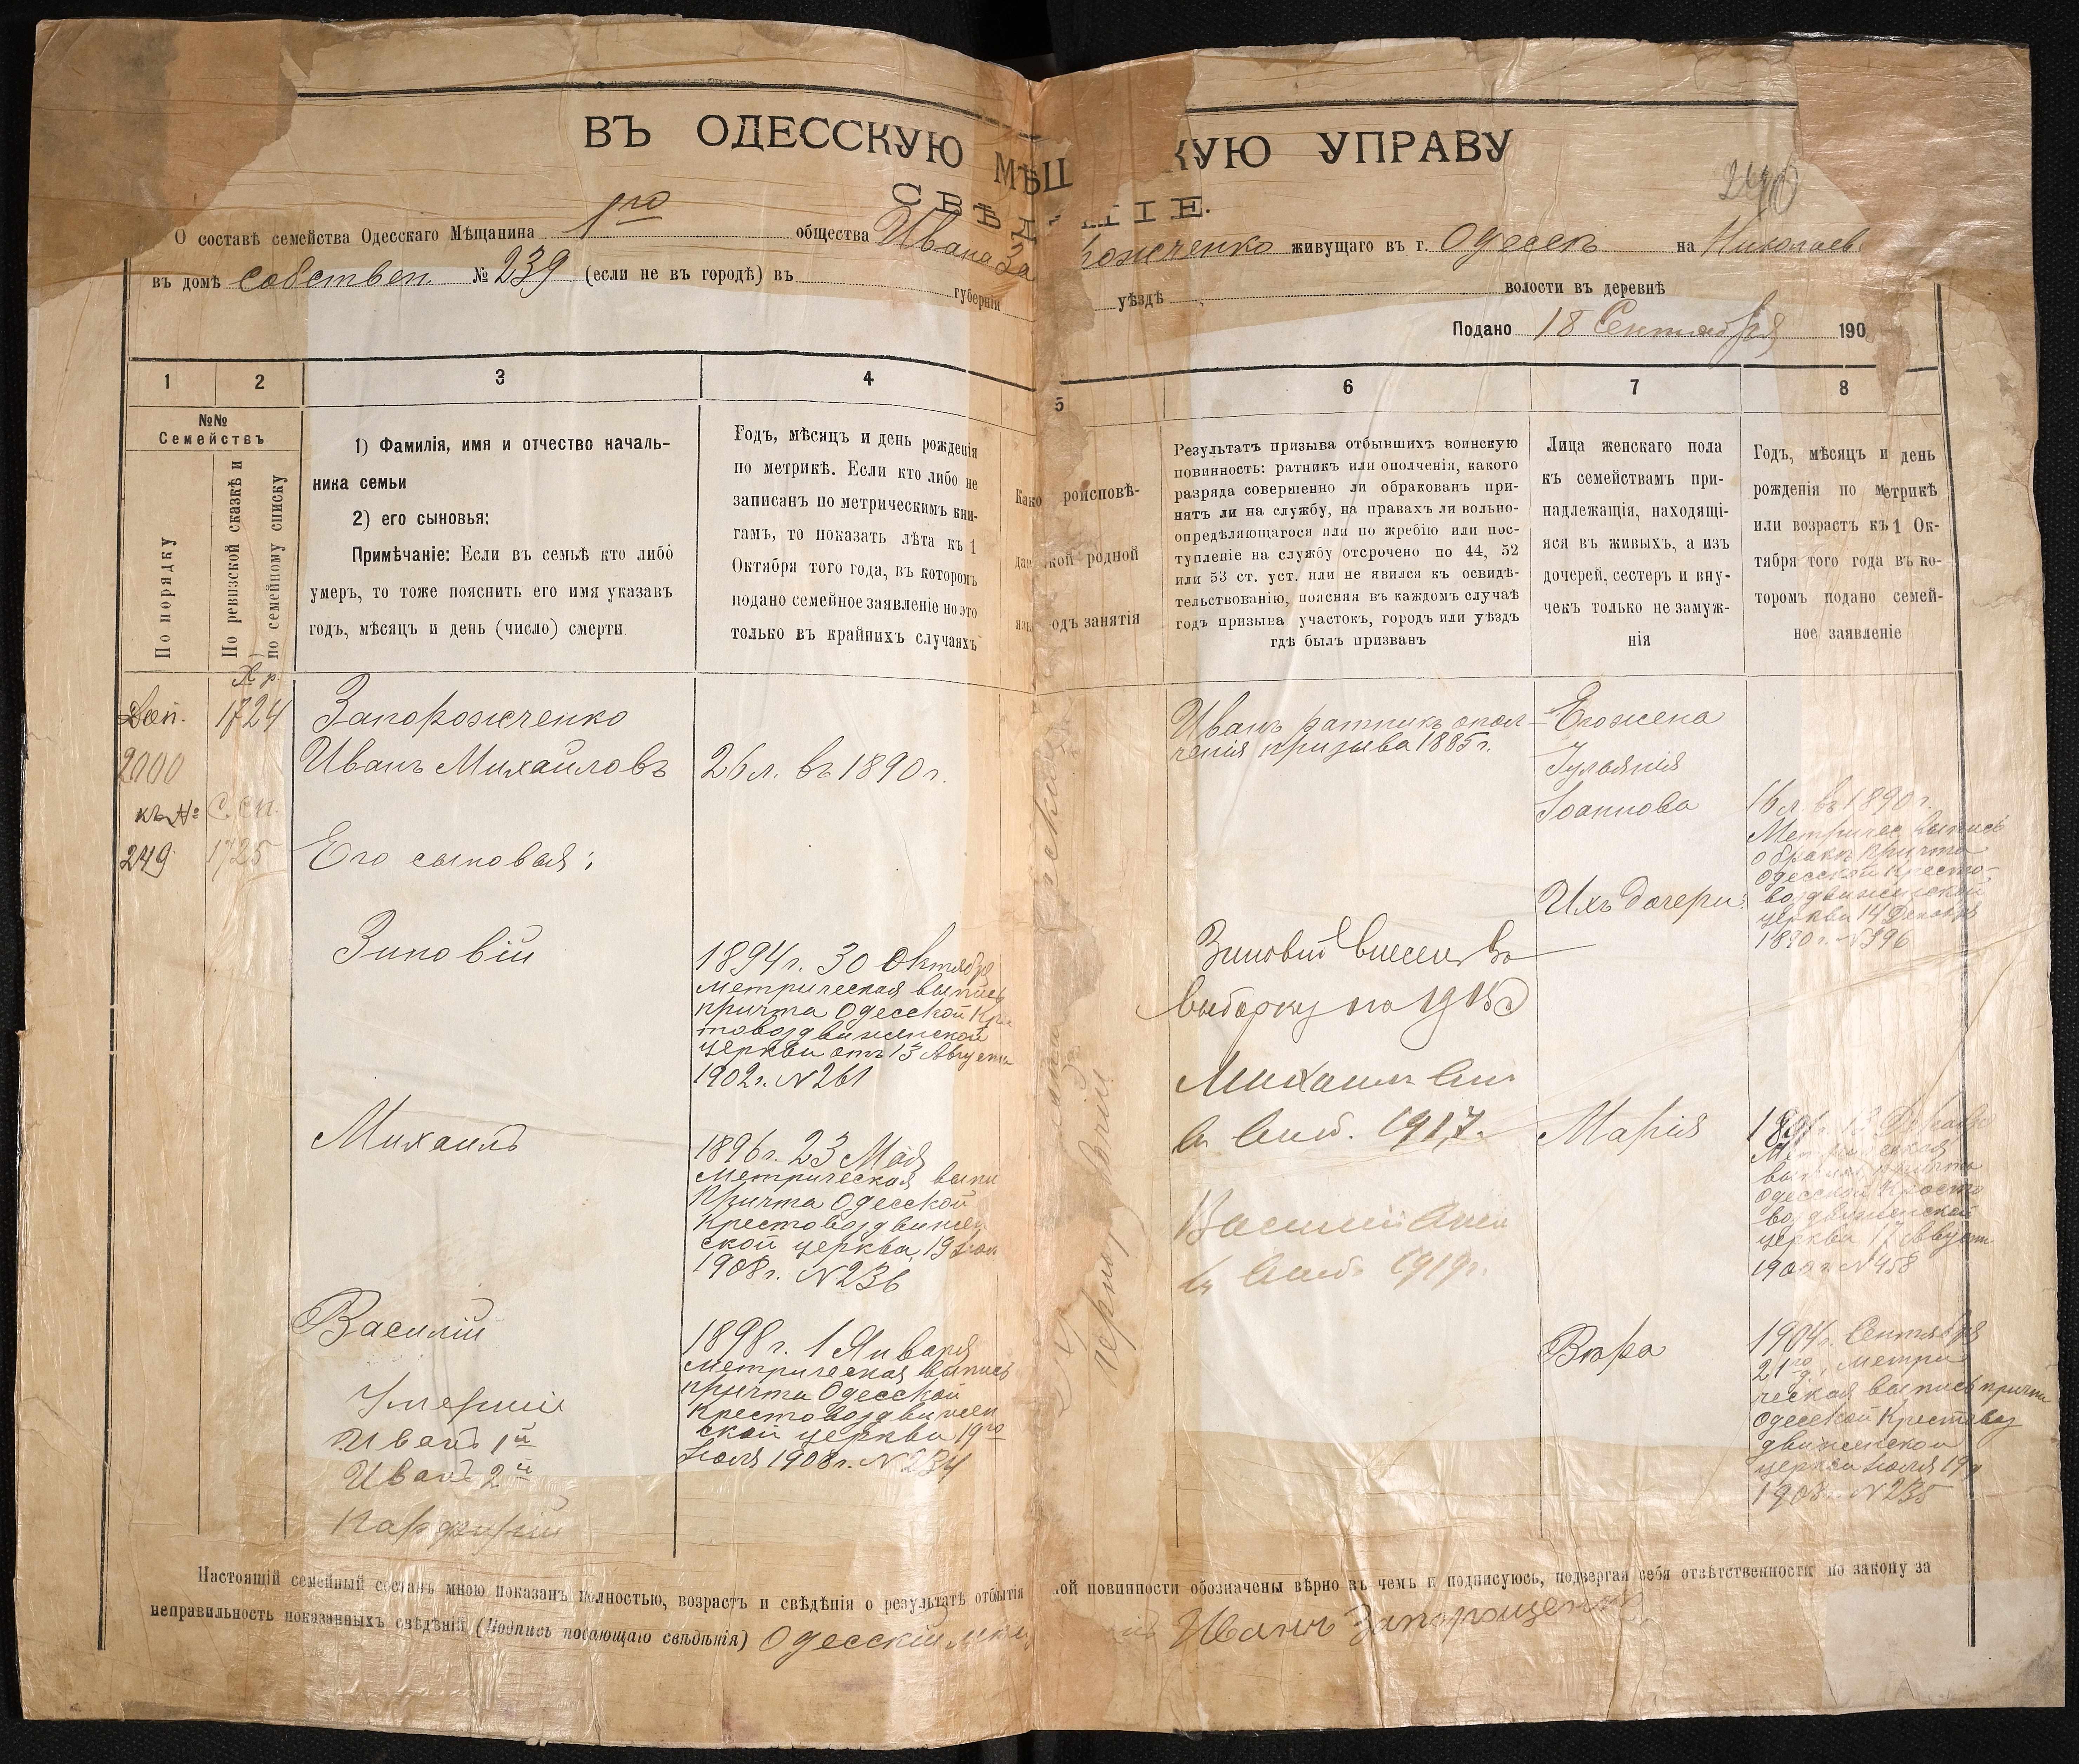 ВЪ ОДЕССКУЮ МѢЩ КУЮ УПРАВУ
СВѢД НІЕ.
О составѣ семейства Одесскаго Мѣщанина 1го общества Ивана За рожченко живущаго въ г. Одессѣ на Николаев
въ домѣ собствен. № 239 (если не въ городѣ) въ губерніи уѣздѣ волости въ деревнѣ
Подано 18 Сентября 190
1 2 3 4 5 6 7 8
№№
Семействъ
По порядку
По ревизской сказкѣ и
по семейному списку
1) Фамилія, имя и отчество началь-
ника семьи
2) его сыновья:
Примѣчаніе: Если въ семьѣ кто либо
умеръ, то тоже пояснить его имя указавъ
годъ, мѣсяцъ и день (число) смерти
Годъ, мѣсяцъ и день рожденія
по метрикѣ. Если кто либо не
записанъ по метрическимъ кни-
гамъ, то показать лѣта къ 1
Октября того года, въ которомъ
подано семейное заявленіе но это
только въ крайнихъ случаяхъ
Како роисповѣ-
дан кой родной
язы одъ занятія
Результатъ призыва отбывшихъ воинскую
повинность: ратникъ или ополченія, какого
разряда совершенно ли обракованъ при-
нятъ ли на службу, на правахъ ли вольно-
опредѣляющагося или по жребію или пос-
тупленіе на службу отсрочено по 44, 52
или 53 ст. уст. или не явился къ освидѣ-
тельствованію, поясняя въ каждомъ случаѣ
годъ призыва участокъ, городъ или уѣздъ
гдѣ былъ призванъ
Лица женскаго пола
къ семействамъ при-
надлежащія, находящі-
яся въ живыхъ, а изъ
дочерей, сестеръ и вну-
чекъ только не замуж-
нія
Годъ, мѣсяцъ и день
рожденія по метрикѣ
или возрастъ къ 1 Ок-
тября того года въ ко-
торомъ подано семей-
ное заявленіе
Доп.
2000
къ №
249
X р.
1724
С. сп.
1725
Запорожченко
Иванъ Михайловъ
26 л. въ 1890 г.
Иванъ ратникъ опол-
ченія призыва 1885 г.
Его жена
Іуліанія
Іоаннова
16 л. въ 1890 г.
Метричес. выпись
о бракѣ причта
Одесской Кресто-
воздвиженской
церкви 14 Декабря
1890 г. № 396
Его сыновья:
Ихъ дочери:
Зиновій
1894 г. 30 Октября
метрическая выпись
причта Одесской Кре
товоздвиженской
церкви отъ 13 Августа
1902 г. № 261
Зиновій внесенъ въ
выборку по 1915
Михаилъ
1896 г. 23 Мая
Метрическая выпи
Причта Одесской
Крестовоздвижен
ской церкви, 19 Іюл
1908 г. № 236
Михаилъ
1917.
Марія
Одесской Кресто
воздвиженской
церкви 17 Август
№ 458
Василій
1898 г. 1 Января
метрическая выпись
причта Одесской
Крестовоздвижен
ской церкви 19го
Іюля 1908 г. № 234
Василій
1919 г.
Вѣра
1904 г. Сентября
21го д. Метри
ческая выпись причта
Одесской Крестовоз
движенской
церкви Іюля 19 д
1908 г. № 235
Умершіе
Иванъ 1й
Иванъ 2й
Порфирій
Настоящій семейный составъ мною показанъ полностью, возрастъ и свѣдѣнія о результатѣ отбытія кой повинности обозначены вѣрно въ чемъ и подписуюсь, подвергая себя отвѣтственности по закону за
неправильность показанныхъ свѣдѣній (Подпись подающаго свѣдѣнія) Одесскій мѣщ нъ Иванъ Запорощенко